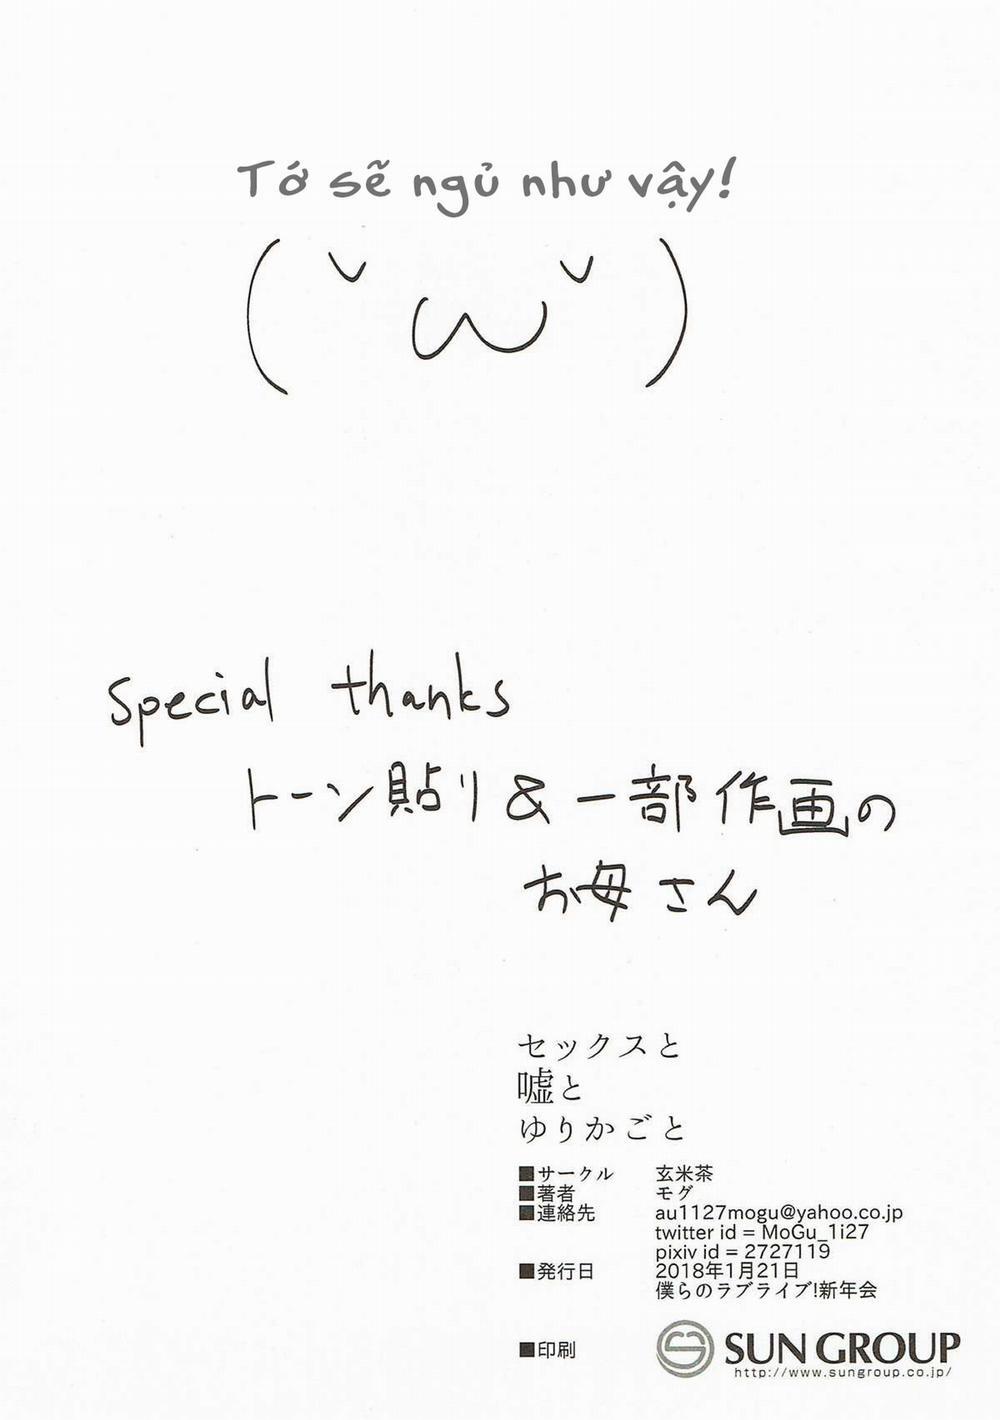 Tớ sẽ ngủ như vậy!
( ˇωˇ )
special thanks
トーン貼り&一部作画の
お母さん
セックスと
嘘と
ゆりかごと
■サークル 玄米茶
■著者 モグ
■連絡先 au1127mogu@yahoo.co.jp
twitter id = MoGu_1i27
pixiv id = 2727119
■発行日 2018年1月21日
僕らのラブライブ!新年会
■印刷 SUN GROUP
http://www.sungroup.co.jp/